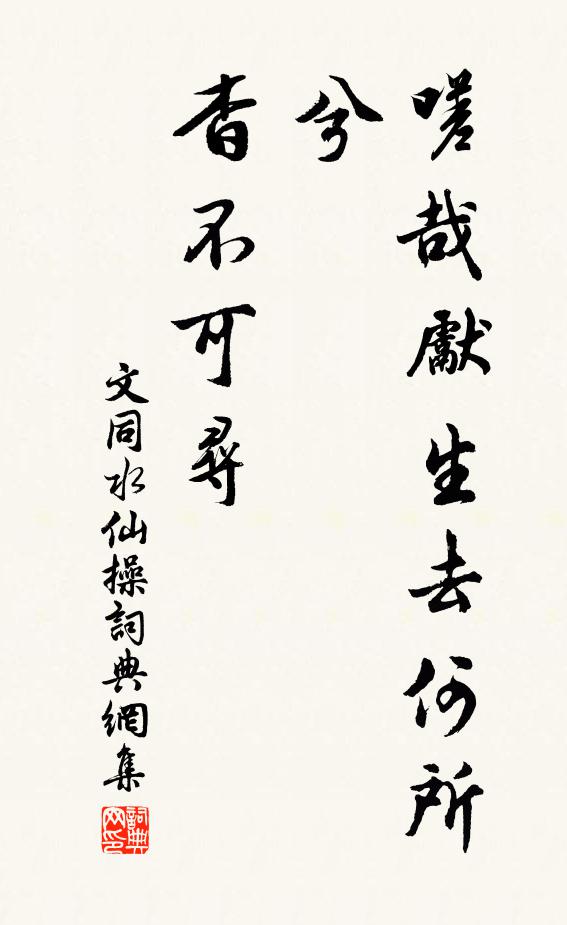 嗟哉獻生去何所
兮
杳不可尋
文同水仙操詞典網集
詞典网印